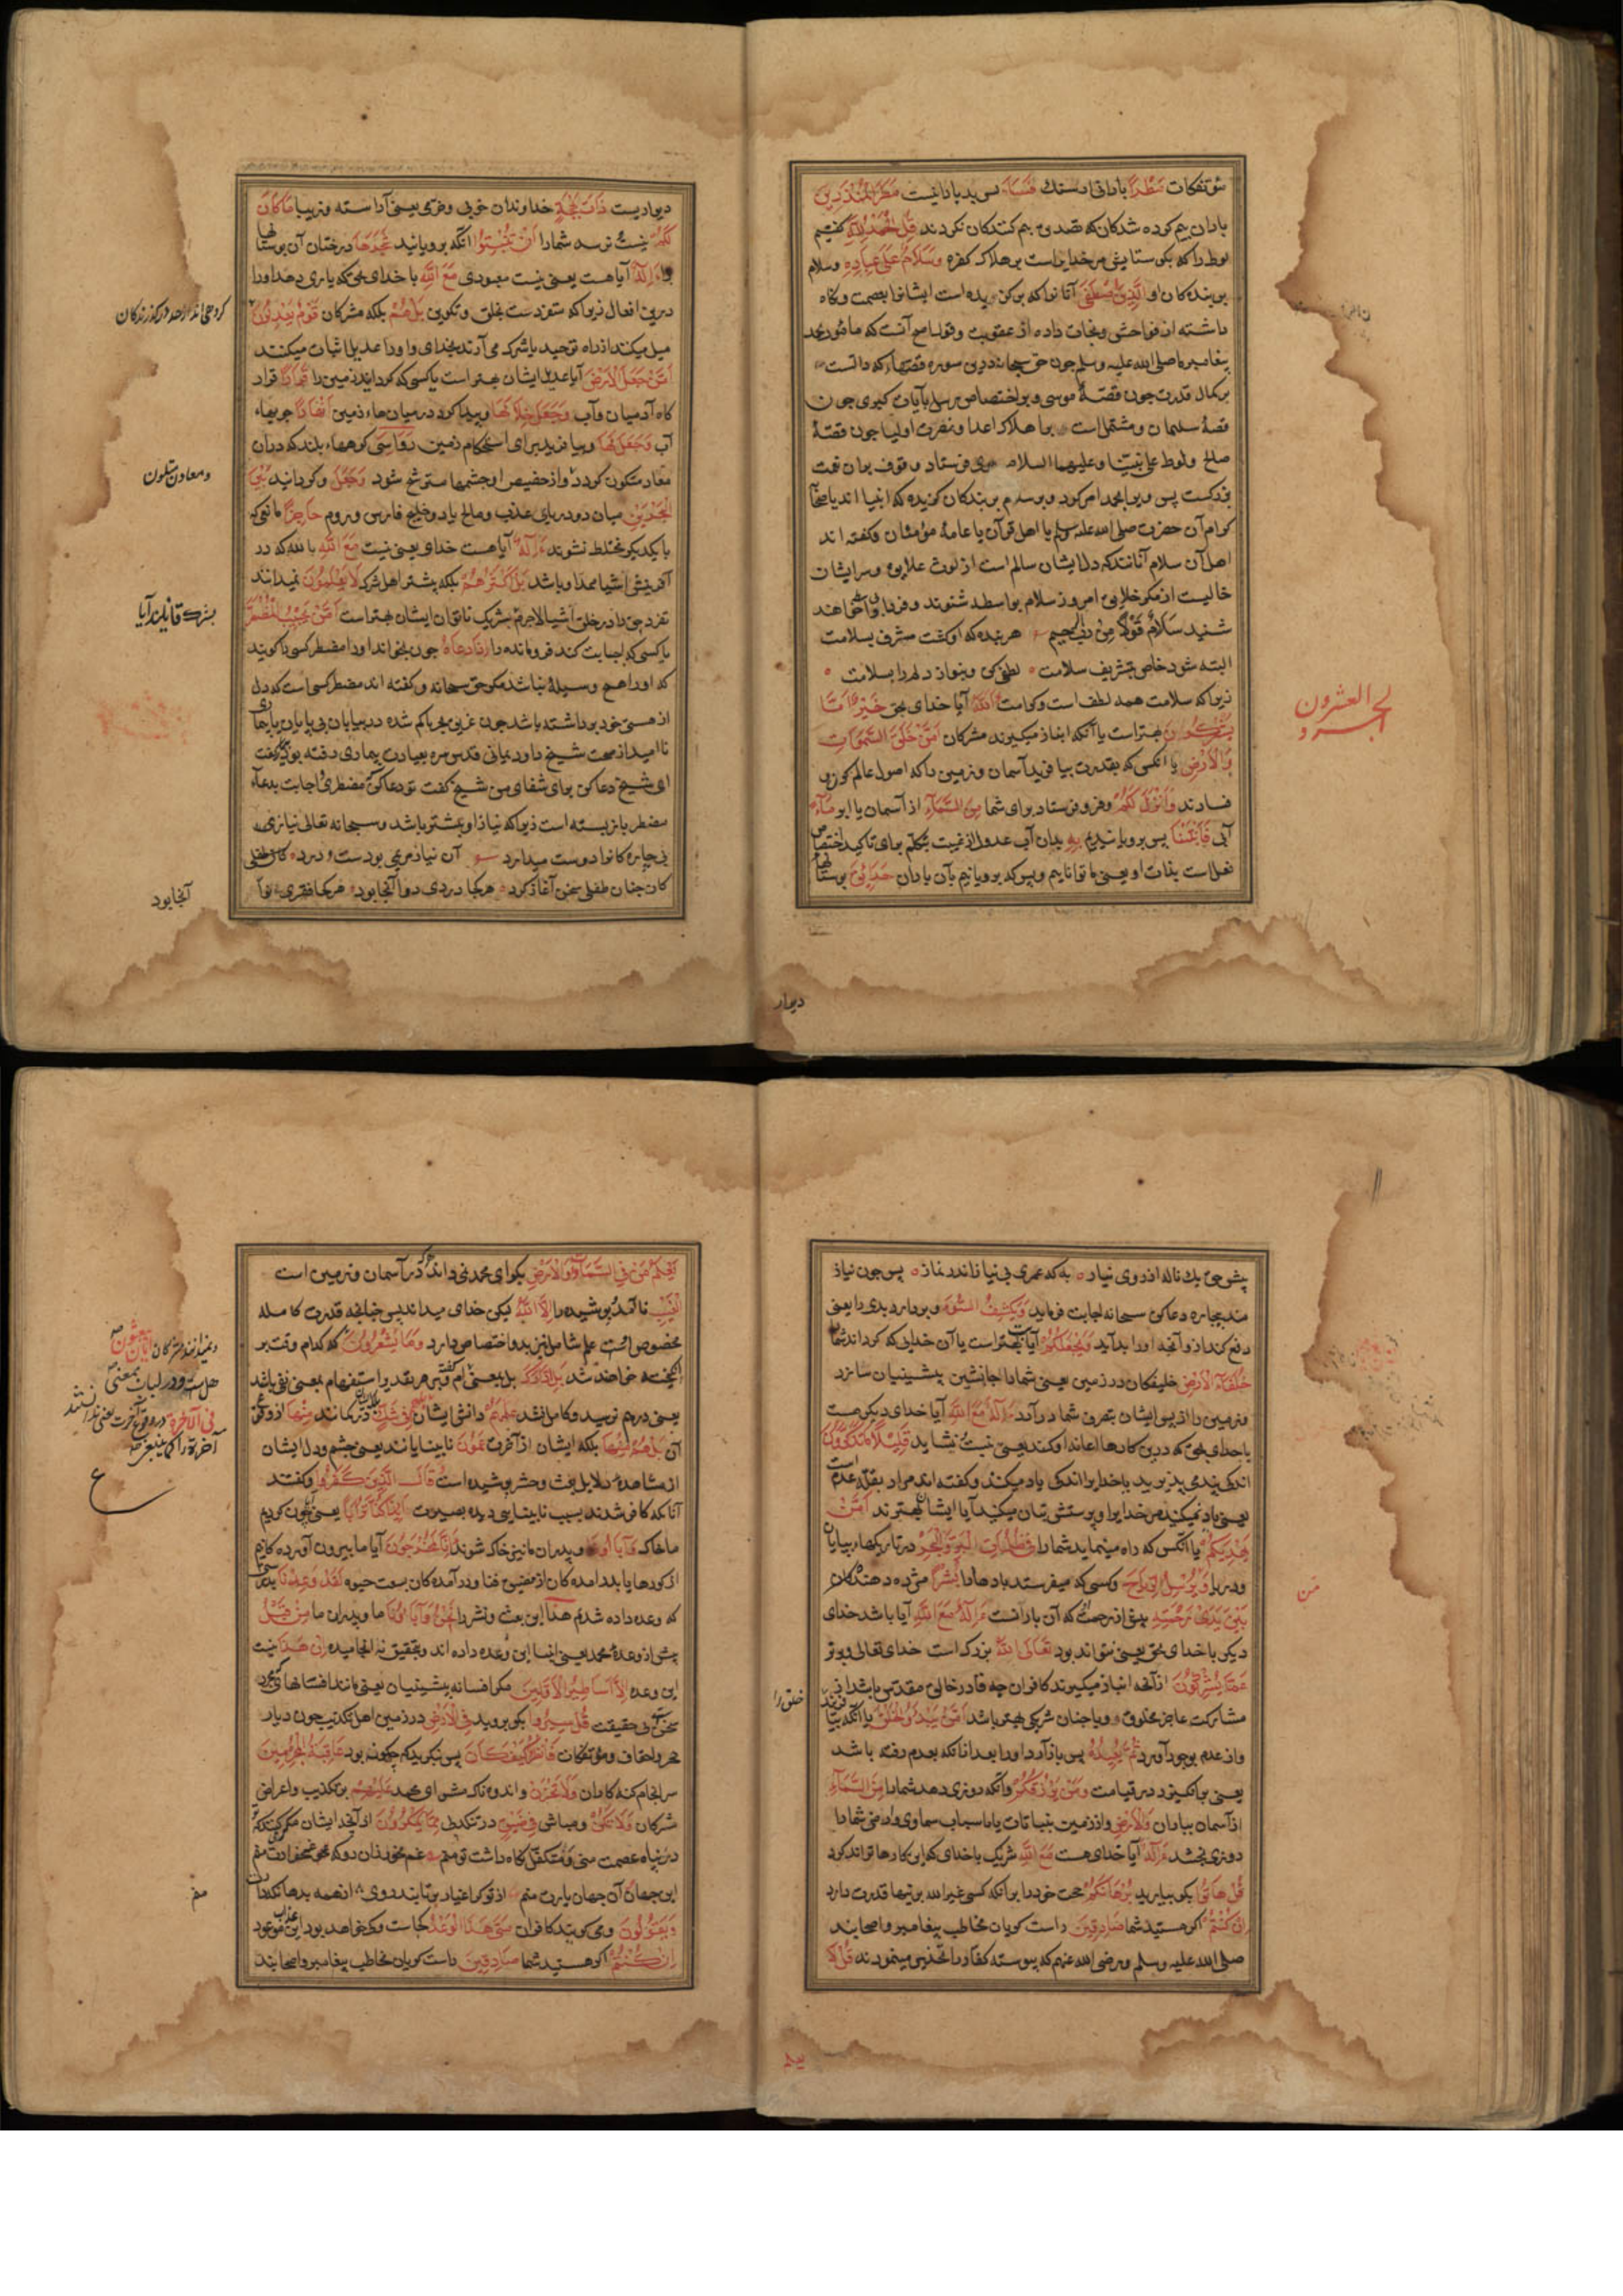 مؤتفکات مَطَرًا بارانی از سنک فَسَاءَ پس بد بارانیست مَطَرُ الْمُنْذَرِينَ
باران بیم کرده شدکان که تصدیق بیم کنندکان نکردند قُلِ الْحَمْدُ لِلَّهِ گفتیم
لوط را که بکو ستایش مر خدایراست بر هلاک کفره وَسَلَامٌ عَلَى عِبَادِهِ وسلام
بر بندکان او الَّذِينَ اصْطَفَى آنانرا که برکزیده است ایشانرا بعصمت ونکاه
داشته از فواحش ونجات داده از عقوبت وقول اصح آنست که مامور محمد
پیغامبر ما صلی الله علیه وسلم چون حق سبحانه درین سوره قصتهاء که دالست
بر کمال قدرت چون قصۀ موسی وبر اختصاص رسل بآیات کبری چون
قصۀ سلیمان ومشتمل است بر اهلاک اعدا ونصرت اولیا چون قصۀ
صالح ولوط علی نبینا وعلیهما السلام
کرام آن حضرت صلی الله علیه وسلم یا اهل قرآن یا عامۀ مؤمنان وکفته اند
اهل آن سلام آنانند که دل ایشان سالم است از لوث علایق وسر ایشان
خالیست از فکر خلایق امروز سلام بواسطه شنوند وفردا
شنید سَلَامٌ قَوْلًا مِنْ رَبٍّ رَحِيمٍ هر بنده که او کشت مشرف بسلامت
البته شود خاص بتشریف سلامت لطفی کن وبنواز دلم را بسلامت
زیرا که سلامت همه لطف است وکرامت آللَّهُ آیا خدای بحق خَيْرٌ أَمَّا
يُشْرِكُونَ بهتر است یا آنکه انباز میکیرند مشرکان أَمَّنْ خَلَقَ السَّمَوَاتِ
وَالْأَرْضَ یا انکس که بقدرت بیافرید آسمان وزمین را که اصول عالم کون
فسادند وَأَنْزَلَ لَكُمْ وفرو فرستاد برای شما مِنَ السَّمَاءِ از آسمان یا ابر مَاءً
آبی فَأَنْبَتْنَا پس برویانیدیم بِهِ بدان آب عدول از غیبت بتکلم برای تاکید اختصاص
فعل است بذات او یعنی ما توانایم وبس که برویانیم بآن باران حَدَائِقَ بوستانها
دیوار
الجزء العشرون
دیواریست ذَاتَ بَهْجَةٍ خداوندان خوبی وخرمی یعنی آراسته وزیبا مَا كَانَ
لَكُمْ نیست ونرسد شمارا أَنْ تُنْبِتُوا آنکه برویانید شَجَرَهَا درختان آن بوستانها
را أَإِلَهٌ آیا هست یعنی نیست معبودی مَعَ اللَّهِ با خدای بحق که یاری دهد اورا
درین افعال زیرا که متفردست بخلق وتکوین بَلْ هُمْ بلکه مشرکان قَوْمٌ يَعْدِلُونَ
میل میکنند از راه توحید یا شرک می آرند بخدای واورا عدیل اثبات میکنند
أَمَّنْ جَعَلَ الْأَرْضَ آیا عدیل ایشان بهتر است یا کسی که کردانید زمین را قَرَارًا قرار
کاه آدمیان وآب وَجَعَلَ خِلَالَهَا وپیدا کرد در میان هاء زمین أَنْهَارًا جویهاء
آب وَجَعَلَ لَهَا وبیافرید برای استحکام زمین رَوَاسِيَ کوههاء بلند که در ان
معادن متکون کردد واز حضیض او چشمها مترشح شود وَجَعَلَ وکردانید بَيْنَ
الْبَحْرَيْنِ میان دو دریای عذب ومالح یا دو خلیج فارس وروم حَاجِزًا مانعی که
با یکدیکر مختلط نشوند أَإِلَهٌ آیا هست خدای یعنی نیست مَعَ اللَّهِ با الله که در
آفرینش اشیا ممد او باشد بَلْ أَكْثَرُهُمْ بلکه بیشتر اهل شرک لَا يَعْلَمُونَ نمیدانند
تفرد حق را در خلق اشیا لاجرم شریک ناتوان ایشان بهتر است أَمَّنْ يُجِيبُ الْمُضْطَرَّ
یا کسی که اجابت کند فرومانده را إِذَا دَعَاهُ چون بخواند اورا مضطر کسی را کویند
که اورا هیچ وسیلۀ نباشد مکر حق سبحانه وکفته اند مضطر کسی است که دل
از هستی خود برداشته باشد چون غریق بحر یا کم شده در بیابان بی پایان یا بیمار
ناامید از صحت شیخ داود یمانی قدس سره بعیادت بیماری رفته بود بیمار کفت
ای شیخ دعا کن برای شفای من شیخ کفت تو دعا کن که مضطری اجابت بدعاء
مضطر باز بسته است زیرا که نیاز او بیشتر باشد وسبحانه تعالی نیازمندی
بیچارکانرا دوست میدارد آن نیاز مریمی بودست ودرد که
کان چنان طفلی سخن آغاز کرد هر کجا دردی دوا آنجا بود هر کجا فقری نوا
کروهی اند از حد درکذرندکان
ومعادن متلون
بشرک قائلند آیا
آنجا بود
پیش حق یک ناله از روی نیاز به که عمری بی نیاز اندر نماز پس چون نیاز
مند بیچاره دعا کند سبحانه اجابت فرماید وَيَكْشِفُ السُّوءَ وبردارد بدی را یعنی
دفع کند ازو آنچه اورا بد آید وَيَجْعَلُكُمْ آیا بهتر است یا آن خدایی که کرداند شمارا
خُلَفَاءَ الْأَرْضِ خلیفکان در زمین یعنی شمارا جانشین پیشینیان سازد
وزمین را از پس ایشان بتصرف شما در آرد أَإِلَهٌ مَعَ اللَّهِ آیا خدای دیکر هست
با خدای بحق که درین کارها اعانه او کند یعنی نیست ونشاید قَلِيلًا مَا تَذَكَّرُونَ
اندکی پند می پذیرید یا خدایرا اندکی یاد میکنید وکفته اند مراد بقلة عدم است
یعنی یاد نمیکنید مر خدایرا وپرستش بتان میکنید آیا ایشان بهترند أَمَّنْ
يَهْدِيكُمْ یا آنکس که راه مینماید شمارا فِي ظُلُمَاتِ الْبَرِّ وَالْبَحْرِ در تاریکیهاء بیابان
ودریا وَمَنْ يُرْسِلُ الرِّيَاحَ وکسی که میفرستد بادهارا بُشْرًا مژده دهندکان
بَيْنَ يَدَيْ رَحْمَتِهِ پیش از رحمت که آن بارانست أَإِلَهٌ مَعَ اللَّهِ آیا باشد خدای
دیکر با خدای بحق یعنی نتواند بود تَعَالَى اللَّهُ بزرک است خدای تعالی وبرتر
عَمَّا يُشْرِكُونَ از آنچه انباز میکیرند کافران چه قادر خالق مقدس باشد از
مشارکت عاجز مخلوق ویا چنان شریکی بهتر باشد أَمَّنْ يَبْدَأُ الْخَلْقَ یا آنکه بیافریند
واز عدم بوجود آورد ثُمَّ يُعِيدُهُ پس باز آرد اورا بعد از آنکه بعدم رفته باشد
یعنی برانکیزد در قیامت وَمَنْ يَرْزُقُكُمْ وآنکه روزی دهد شمارا مِنَ السَّمَاءِ
از آسمان بباران وَالْأَرْضِ واز زمین بنباتات یا باسباب سماوی وارضی شمارا
روزی بخشد أَإِلَهٌ آیا خدای هست مَعَ اللَّهِ شریک با خدای که این کارها تواند کرد
قُلْ هَاتُوا بکو بیارید بُرْهَانَكُمْ حجت خودرا برآنکه کسی غیر الله برینها قدرت دارد
إِنْ كُنْتُمْ اکر هستید شما صَادِقِينَ راست کویان مخاطب پیغامبر واصحابند
صلی الله علیه وسلم ورضی الله عنهم که پیوسته کفار را تحذیر مینمودند قُلْ لَا
مَن
خلق را
يعلم
يَعْلَمُ مَنْ فِي السَّمَاوَاتِ وَالْأَرْضِ بکو ای محمد نمی داند هرکه در آسمان وزمین است
الْغَيْبَ ناآمده وپوشیده را إِلَّا اللَّهُ لیکن خدای میداند پس چنانچه قدرت کامله
مخصوص اوست علم شامل نیز بدو اختصاص دارد وَمَا يَشْعُرُونَ که کدام وقت بر
انکیخته خواهند شد بَلِ ادَّارَكَ
یعنی درهم نرسید وکامل نشد عِلْمُهُمْ دانش ایشان بَلْ هُمْ فِي شَكٍّ در کمانند مِنْهَا از وقوع
آن بَلْ هُمْ مِنْهَا بلکه ایشان از آخرت عَمُونَ نابینایانند یعنی چشم دل ایشان
از مشاهدۀ دلایل بعث وحشر پوشیده است وَقَالَ الَّذِينَ كَفَرُوا وکفتند
آنانکه کافر شدند بسبب نابینایی دیده بصیرت أَئِذَا كُنَّا تُرَابًا یعنی چون کردیم
ما خاک وَآبَاؤُنَا وپدران ما نیز خاک شوند أَئِنَّا لَمُخْرَجُونَ آیا ما بیرون آورده کانیم
از کورها یا بدرآمده کان از مضیق فنا ودرآمده کان بسعت حیوة لَقَدْ وُعِدْنَا بدرستی
که وعده داده شدیم هَذَا این بعث ونشر را نَحْنُ وَآبَاؤُنَا ما وپدران ما مِنْ قَبْلُ
پیش از وعدۀ محمد یعنی انبیا این وعده داده اند وبتحقیق نه انجامیده إِنْ هَذَا نیست
این وعده إِلَّا أَسَاطِيرُ الْأَوَّلِينَ مکر افسانه پیشینیان یعنی مانند افسانهای
سخن بی حقیقت قُلْ سِيرُوا بکو بروید فِي الْأَرْضِ در زمین اهل تکذیب چون دیار
حجر واحقاف ومؤتفکات فَانْظُرُوا كَيْفَ كَانَ پس بنکرید که چکونه بود عَاقِبَةُ الْمُجْرِمِينَ
سرانجام کنه کاران وَلَا تَحْزَنْ واندوهناک مشو ای محمد عَلَيْهِمْ بر تکذیب واعراض
مشرکان وَلَا تَكُنْ ومباش فِي ضَيْقٍ در تنکدلی مِمَّا يَمْكُرُونَ از آنچه ایشان مکر میکنند که
در پناه عصمت منی ومتکفل نکاه داشت تو منم غم مخور زان رو که غمخوارت منم
این جهان وآن جهان یارت منم از تو کر اغیار برتابند روی
وَيَقُولُونَ ومی کویند کافران مَتَى هَذَا الْوَعْدُ کجاست وکی خواهد بود این عذاب موعود
إِنْ كُنْتُمْ اکر هستید شما صَادِقِينَ راست کویان مخاطب پیغامبر واصحابند
ونمیدانند مشرکان أَيَّانَ يُبْعَثُونَ
فِي الْآخِرَةِ
منم